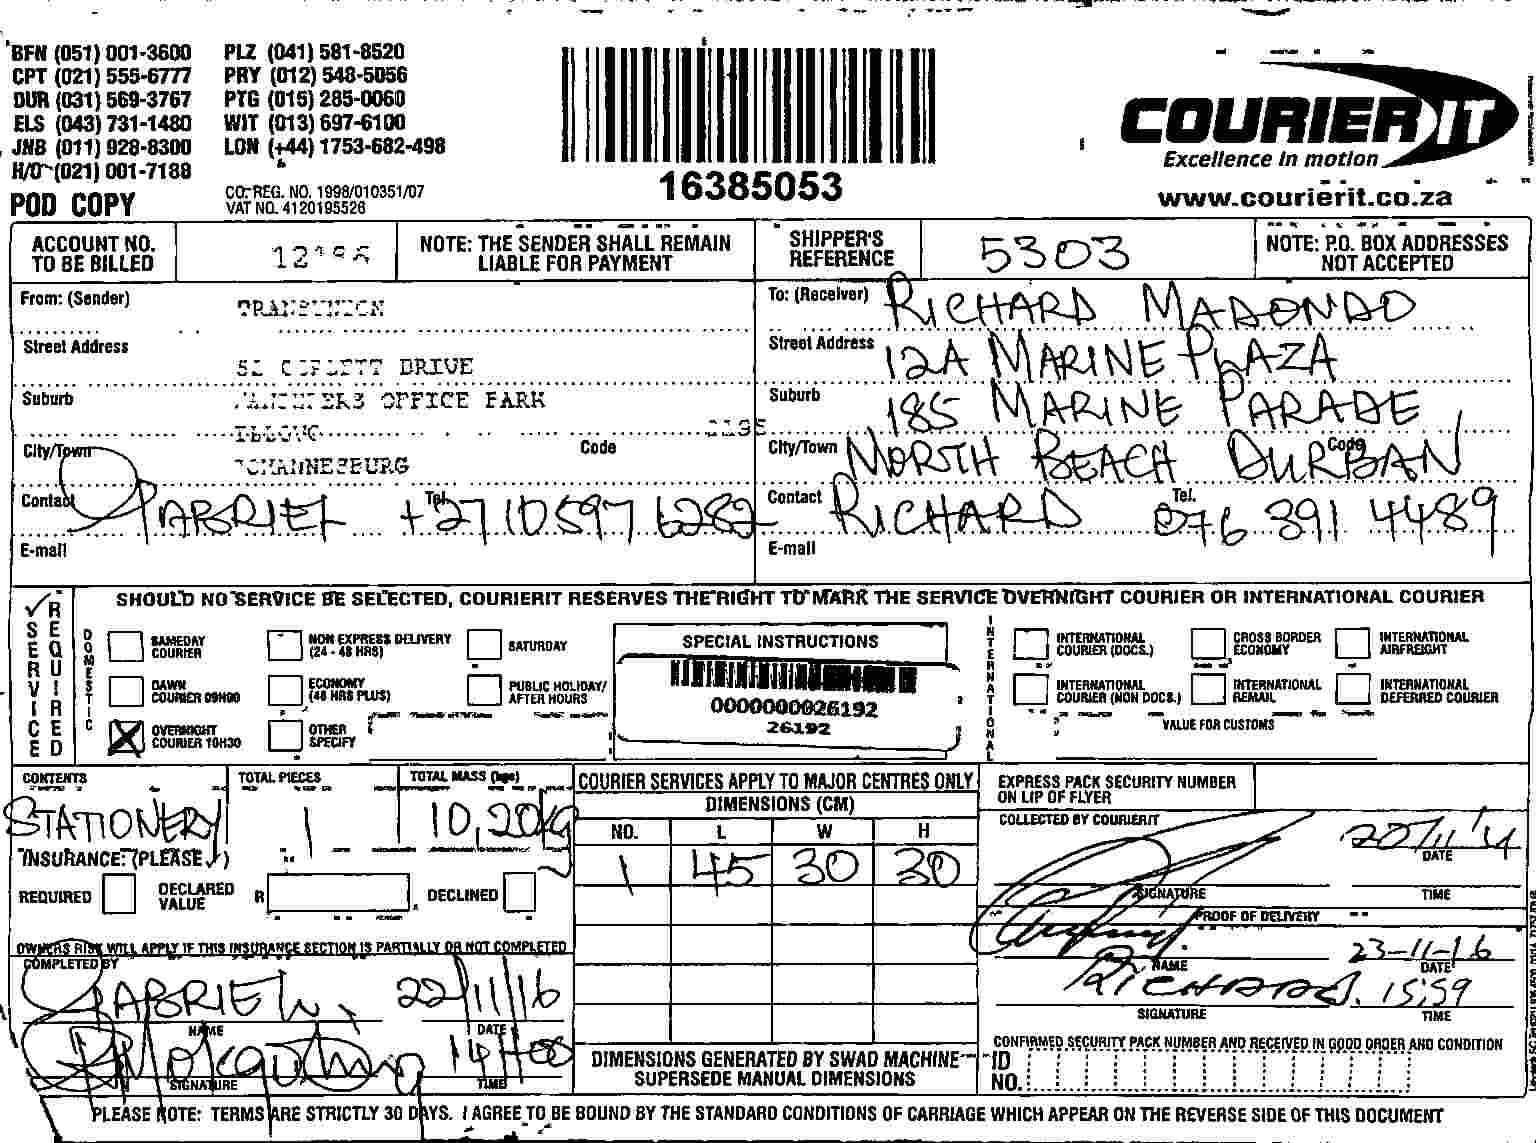 BFN (051) 001-3600 PLZ (041) 581-8520
CPT (021) 555-6777 PRY (012) 548-5056
DUR (031) 569-3767 PTG (015) 285-0060
ELS (043) 731-1480 WIT (013) 697-6100
JNB (011) 928-8300 LON (+44) 1753-682-498
H/O (021) 001-7188
POD COPY
CO. REG. NO. 1998/010351/07
VAT NO. 4120195526
16385053
COURIER IT
Excellence in motion
www.courierit.co.za
ACCOUNT NO. TO BE BILLED
NOTE: THE SENDER SHALL REMAIN LIABLE FOR PAYMENT
SHIPPER'S REFERENCE 5303
NOTE: P.O. BOX ADDRESSES NOT ACCEPTED
From: (Sender)
Street Address DRIVE
Suburb OFFICE PARK
City/Town Code
JOHANNESBURG
Contact GABRIEL Tel. +27 10 597 6282
E-mail
To: (Receiver) RICHARD MADONDO
Street Address 12A MARINE PLAZA
Suburb 185 MARINE PARADE
City/Town NORTH BEACH DURBAN Code
Contact RICHARD Tel. 076 391 4489
E-mail
SERVICE REQUIRED
SHOULD NO SERVICE BE SELECTED, COURIERIT RESERVES THE RIGHT TO MARK THE SERVICE OVERNIGHT COURIER OR INTERNATIONAL COURIER
DOMESTIC
SAMEDAY COURIER
NON EXPRESS DELIVERY (24 - 48 HRS)
SATURDAY
DAWN COURIER 09H00
ECONOMY (48 HRS PLUS)
PUBLIC HOLIDAY/ AFTER HOURS
OVERNIGHT COURIER 10H30
OTHER SPECIFY
SPECIAL INSTRUCTIONS
0000000026192
26192
INTERNATIONAL
INTERNATIONAL COURIER (DOCS.)
CROSS BORDER ECONOMY
INTERNATIONAL AIRFREIGHT
INTERNATIONAL COURIER (NON DOCS.)
INTERNATIONAL REMAIL
INTERNATIONAL DEFERRED COURIER
VALUE FOR CUSTOMS
CONTENTS STATIONERY
TOTAL PIECES 1
TOTAL MASS (kgs) 10,20kg
INSURANCE: (PLEASE ✓)
REQUIRED DECLARED VALUE R DECLINED
OWNERS RISK WILL APPLY IF THIS INSURANCE SECTION IS PARTIALLY OR NOT COMPLETED
COMPLETED BY
GABRIEL 22/11/16
NAME DATE
14H00
SIGNATURE TIME
COURIER SERVICES APPLY TO MAJOR CENTRES ONLY
DIMENSIONS (CM)
NO. L W H
1 45 30 30
DIMENSIONS GENERATED BY SWAD MACHINE SUPERSEDE MANUAL DIMENSIONS
EXPRESS PACK SECURITY NUMBER ON LIP OF FLYER
COLLECTED BY COURIERIT
DATE
SIGNATURE TIME
PROOF OF DELIVERY
23-11-16
NAME DATE
RICHARD 15:59
SIGNATURE TIME
CONFIRMED SECURITY PACK NUMBER AND RECEIVED IN GOOD ORDER AND CONDITION
ID NO.
PLEASE NOTE: TERMS ARE STRICTLY 30 DAYS. I AGREE TO BE BOUND BY THE STANDARD CONDITIONS OF CARRIAGE WHICH APPEAR ON THE REVERSE SIDE OF THIS DOCUMENT